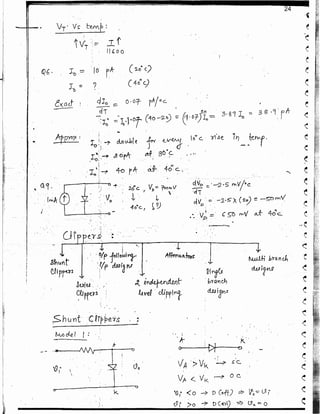 24
V_T Vs temp :
↑V_T = T↑ / 11600
Q6. I_o = 10 pA (20°C)
I_o = ? (40°C)
Exact : dI_o/dT = 0.07 pA/°C
(40-20) = 3.87 I_o = 38.7 pA
Approx : I_o → double for every 10°C rise in temp.
I_o → 20pA at 30°C
I_o → 40 pA at 40°C.
Q9.
1mA
V_o
20°C, V_o = 700mV
40°C, (?)
dV_o/dT = -2.5 mV/°C
dV_o = -2.5 x (20) = -50mV
∴ V_o = 650 mV at 40°C
Clippers :
Shunt Clippers
Series Clippers
i/p following i/p designs
2 independent level clipping
Attenuators
Single branch designs
Multi branch designs
Shunt Clippers :
Model 1 :
A
K
V_i
V_o
A
K
V_A > V_K → SC
V_A < V_K → OC
V_i < 0 → D (off) ⇒ V_o = V_i
V_i > 0 → D (on) ⇒ V_o = 0